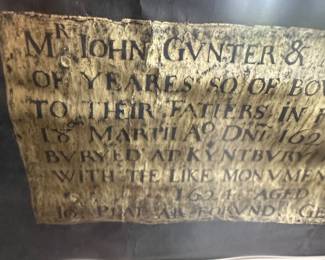 Mᴿ IOHN GVNTER &
OF YEARES SO OF BO
TO THEIR FATHERS IN
18 MARTII Aᴼ DNI 162
BVRYED AT KYNTBVRY
WITH THE LIKE MONVMEN
1624 AGED